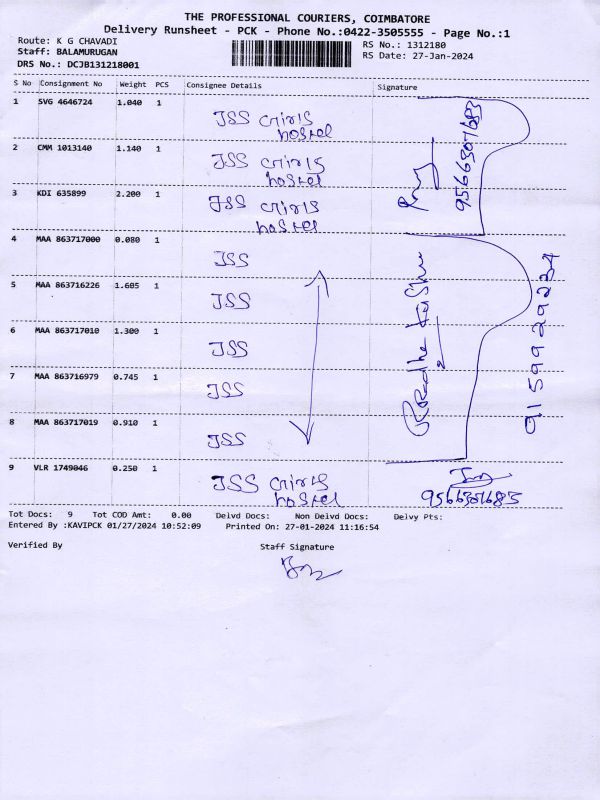 THE PROFESSIONAL COURIERS, COIMBATORE
Delivery Runsheet - PCK - Phone No.:0422-3505555 - Page No.:1
Route: K G CHAVADI
RS No.: 1312180
Staff: BALAMURUGAN
RS Date: 27-Jan-2024
DRS No.: DCJB131218001
S No Consignment No Weight PCS Consignee Details Signature
1 SVG 4646724 1.040 1 JSS Girls
hostel
2 CMM 1013140 1.140 1 JSS Girls
hostel
3 KDI 635899 2.200 1 JSS Girls
hostel
9566307683
4 MAA 863717000 0.080 1 JSS
5 MAA 863716226 1.605 1 JSS
6 MAA 863717010 1.300 1 JSS
7 MAA 863716979 0.745 1 JSS
8 MAA 863717019 0.910 1 JSS
Radhe
9159929234
9 VLR 1749046 0.250 1 JSS Girls
hostel
Tot Docs: 9 Tot COD Amt: 0.00 Delvd Docs: Non Delvd Docs: Delvy Pts:
Entered By :KAVIPCK 01/27/2024 10:52:09 Printed On: 27-01-2024 11:16:54
Verified By Staff Signature